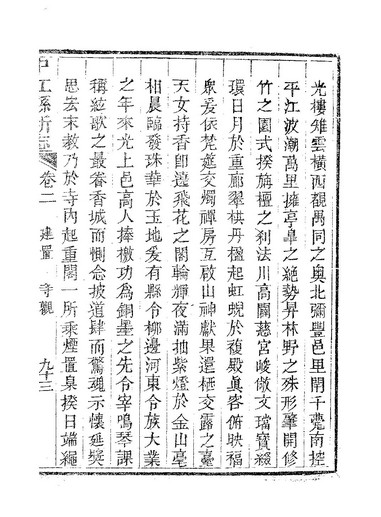 光樓雉雲橫西覿禺同之奧北彌豐邑里閈千甍南控
平江波潮萬里擁亭皐之絶勢昇林野之殊形肇開修
竹之園式揆旃檀之刹法川高闢慈宮峻倣文璫寶綴
環日月於重廊翠栱丹楹起虹蜺於複殿眞容俯映福
衆爰依梵筵交燭禪房互啟山神獻果還栖交露之臺
天女持香卽遶飛花之閣輪輝夜滿抽紫燈於金山亳
相晨臨發珠華於玉地爰有縣令柳邊河東令族大業
之年來光上邑高人捧檄功爲銅墨之先令宰鳴琴課
稱絃歌之最眷香城而惻念披道肆而驚魂示懷延獎
思宏末教乃於寺內起重閣一所乘煙置臬揆日端繩
工系
卷二
建置
寺觀
九十三